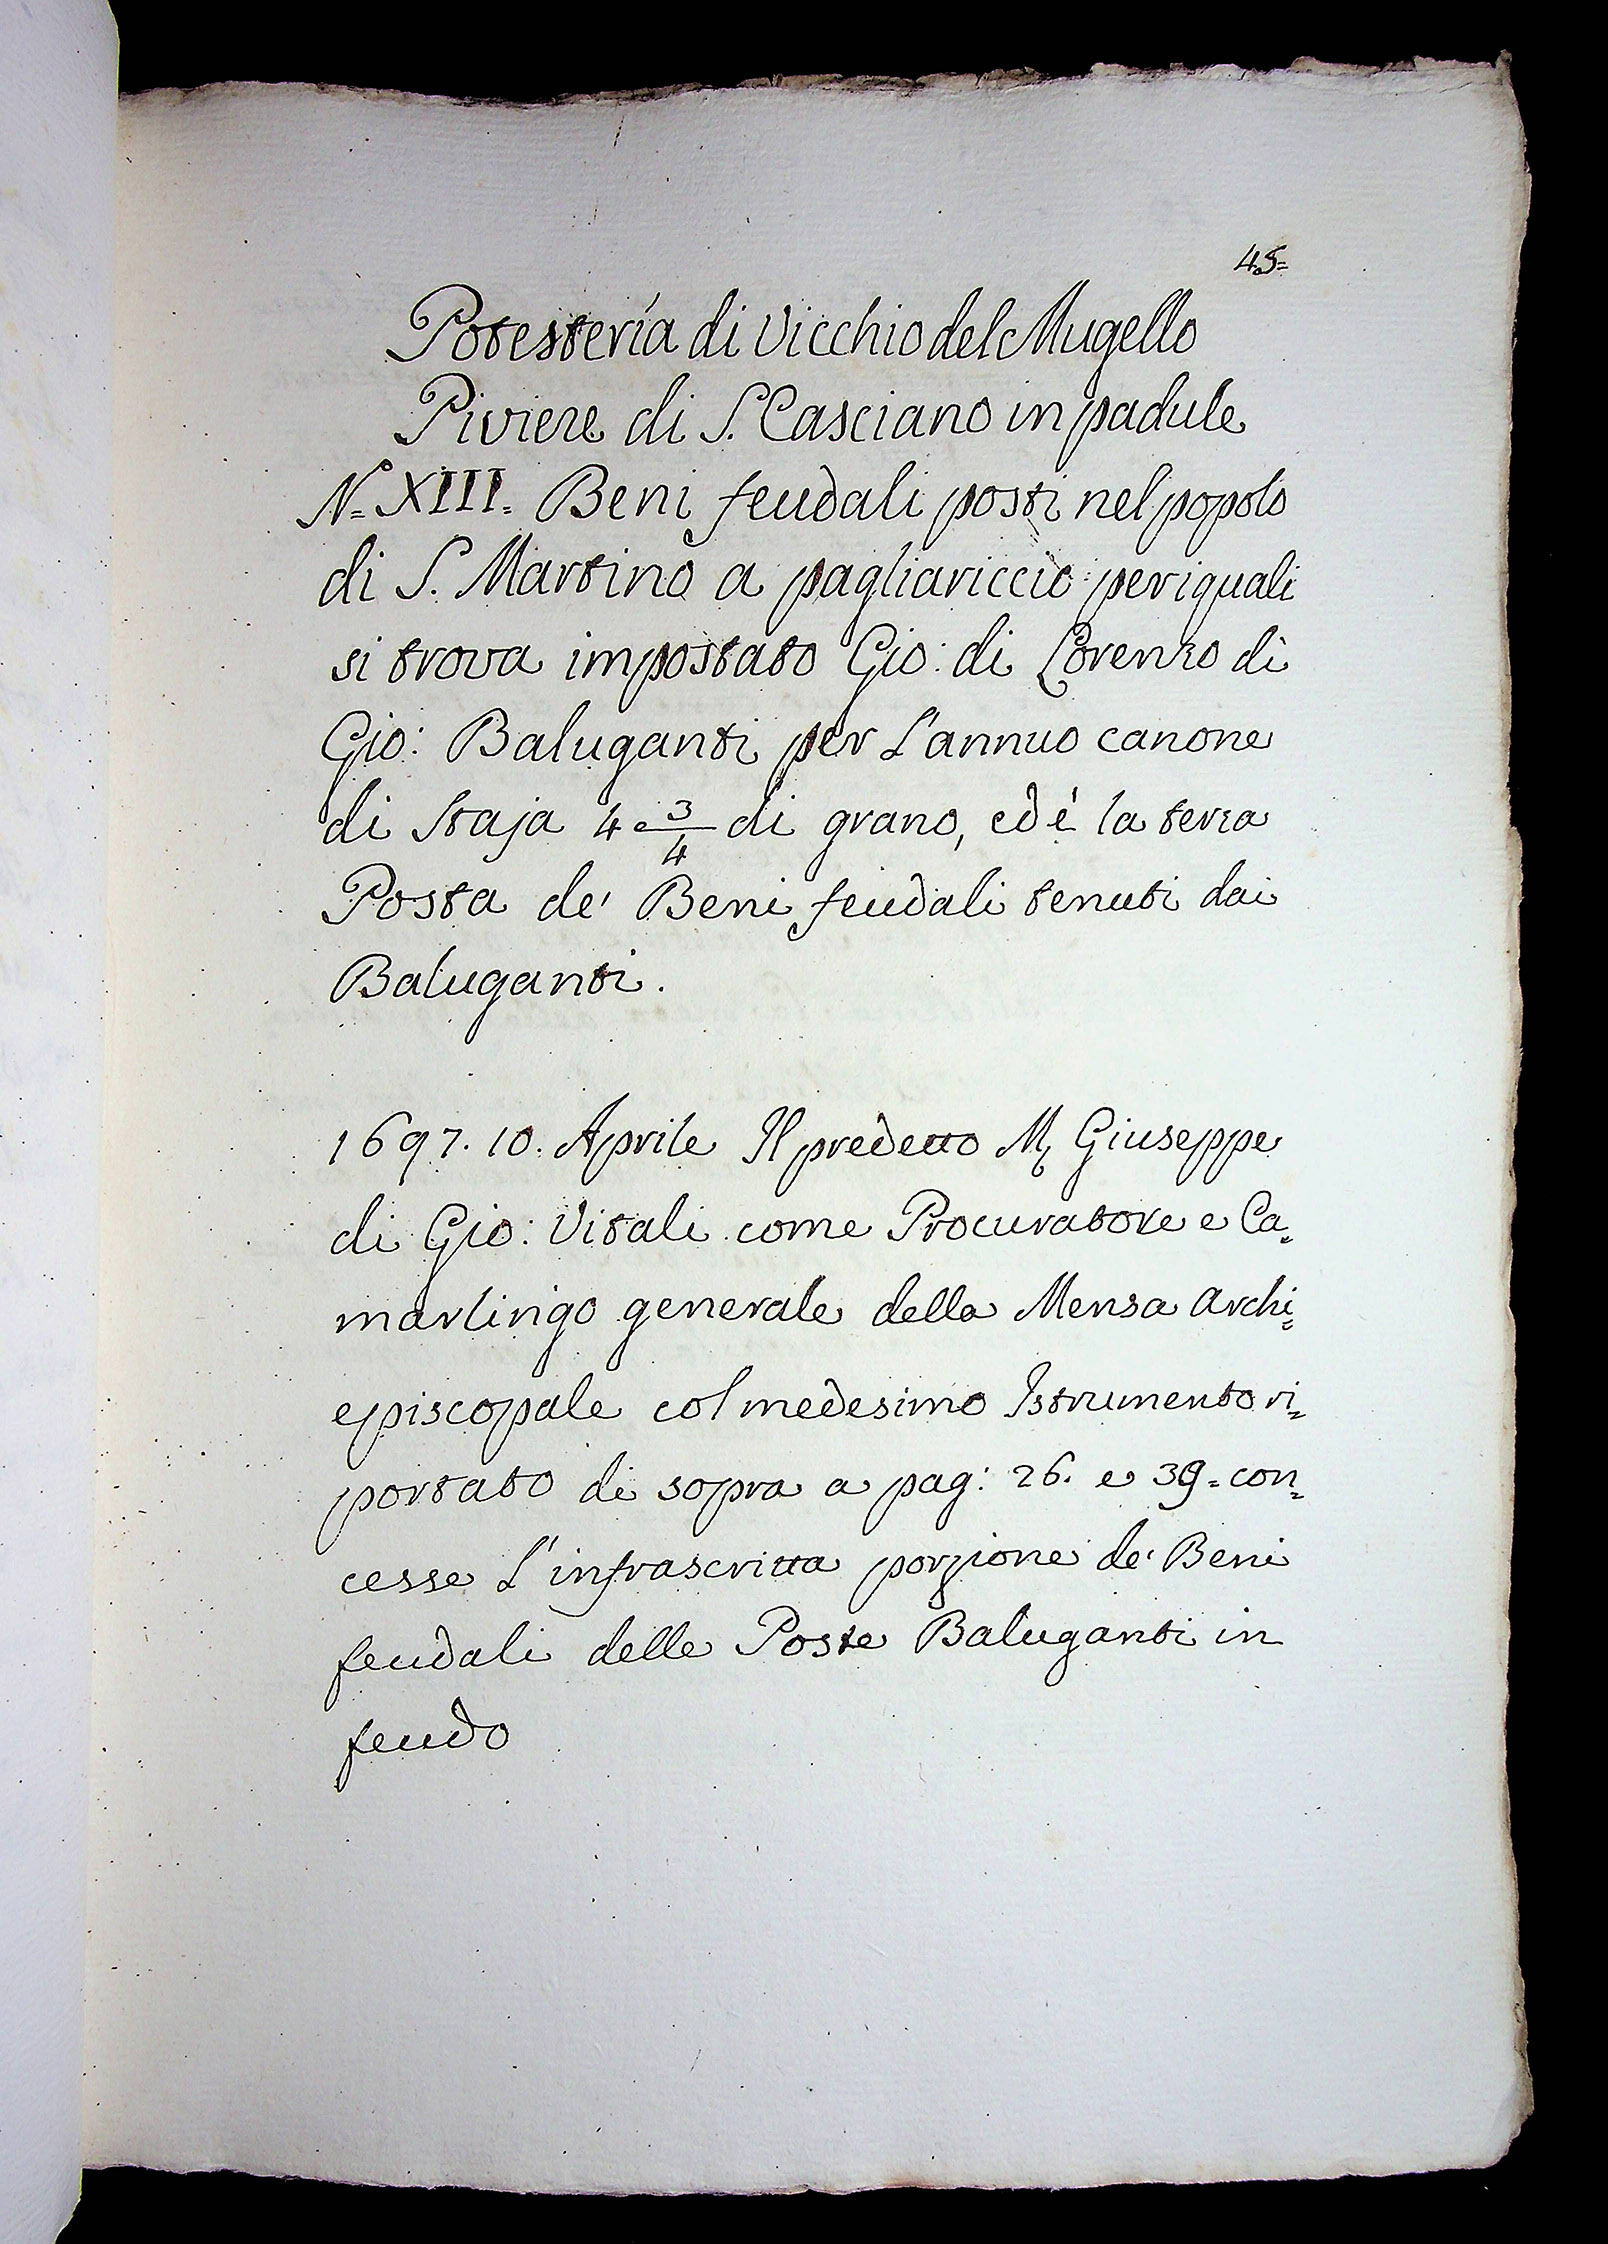 45=
Potestería di Vicchio del Mugello
Piviere di S. Casciano in padule
N.= XIII. Beni feudali posti nel popolo
di S. Martino a pagliariccio per i quali
si trova impostato Gio: di Lorenzo di
Gio: Baluganti per l'annuo canone
di Staja 4 3/4 di grano, ed é la terza
Posta de' Beni feudali tenuti dai
Baluganti.
1697. 10. Aprile Il predetto M. Giuseppe
di Gio: Vitali come Procuratore e Ca=
marlingo generale della Mensa Archi=
episcopale col medesimo Istrumento ri=
portato di sopra a pag: 26. e 39= con=
cesse l'infrascritta porzione de' Beni
feudali delle Poste Baluganti in
feudo